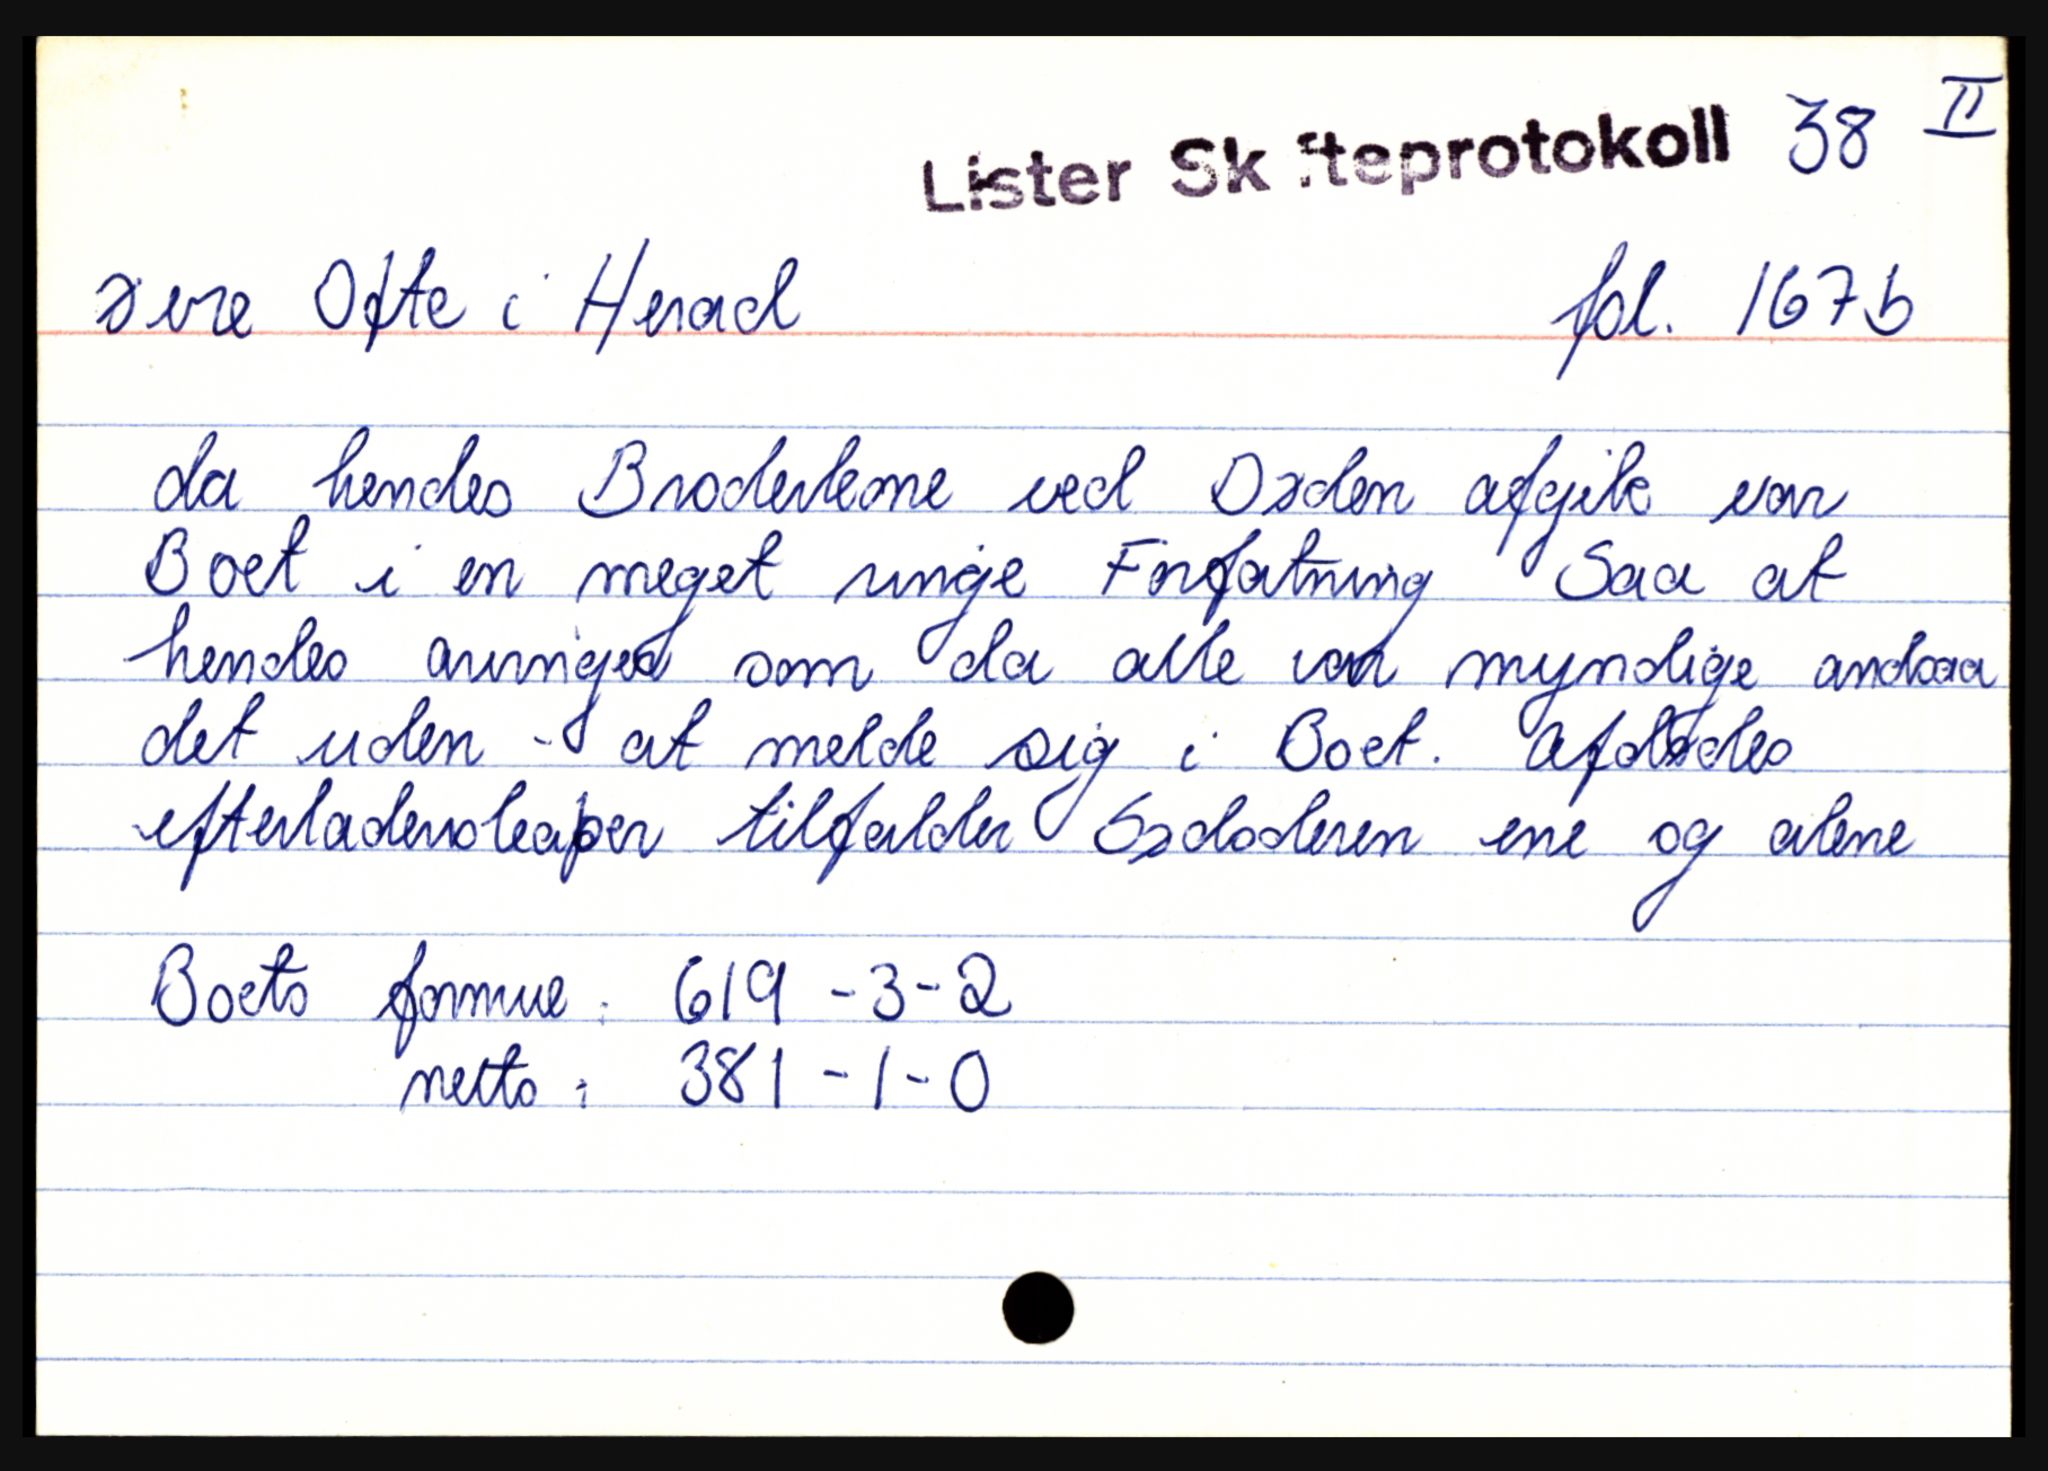 Lister Skifteprotokoll 38 II
øvre Ofte i Herad fol. 167b
da hendes Broderkone ved Døden afgik var
Boet i en meget ringe Forfatning Saa at
hendes arvinger som da alle var myndige ansaa
det uden - at melde sig i Boet. Afdødes
efterladenskaper tilfalder Sødskeren ene og alene
Boets formue : 619 - 3 - 2
netto : 381 - 1 - 0